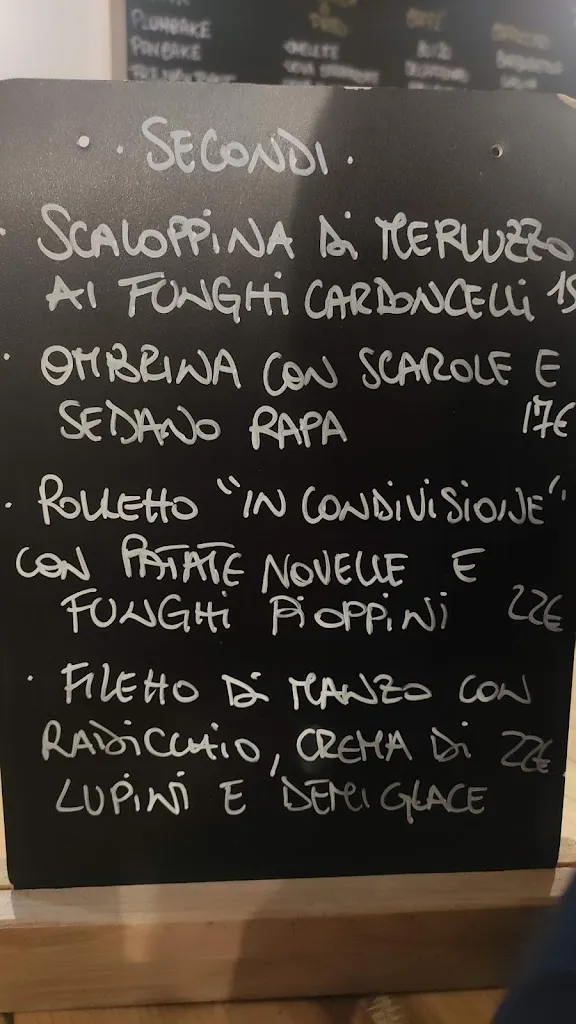 PLUMCAKE
PANCAKE
· SECONDI ·
· SCALOPPINA Di MERLUZZO
AI FUNGHi CARDONCELLi 15
· OMBRINA CON SCAROLE E
SEDANO RAPA 17€
· POLLETTO "IN CONDIVISIONE"
CON PATATE NOVELLE E
FUNGHI PIOPPINI 22€
· FILETTO Di MANZO CON
RADICCHIO, CREMA Di 22€
LUPINI E DEMIGLACE